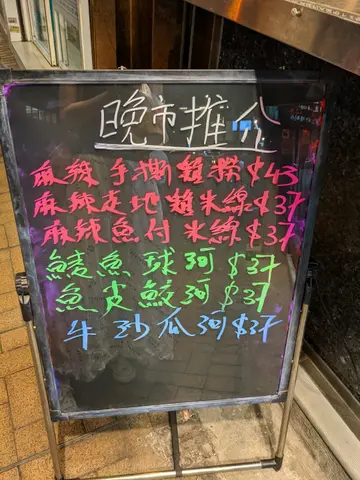 晚市推介
麻辣手撕雞撈 $43
麻辣走地雞米線 $37
麻辣魚付米線 $37
鯪魚球河 $37
魚皮餃河 $37
牛沙瓜河 $37